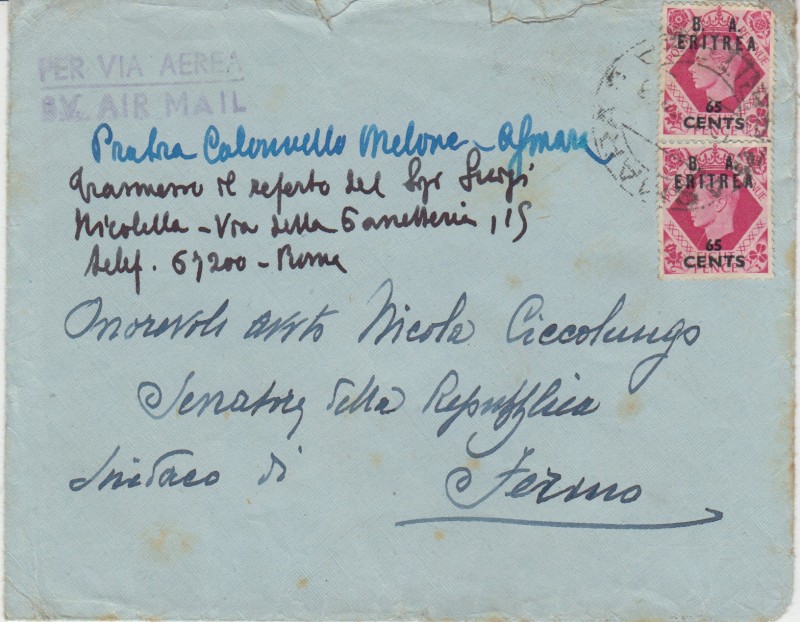 PER VIA AEREA
BY AIR MAIL
B. A.
ERITREA
65
CENTS
PENCE
B. A.
ERITREA
65
CENTS
PENCE
Pratica Colonnello Melone - Asmara
Trasmesso il referto del Sgr Luigi
Nicolella - Via della 15
telef. 67200 - Roma
Onorevole Avvto Nicola Ciccolungo
Senatore della Repubblica
Sindaco di Fermo